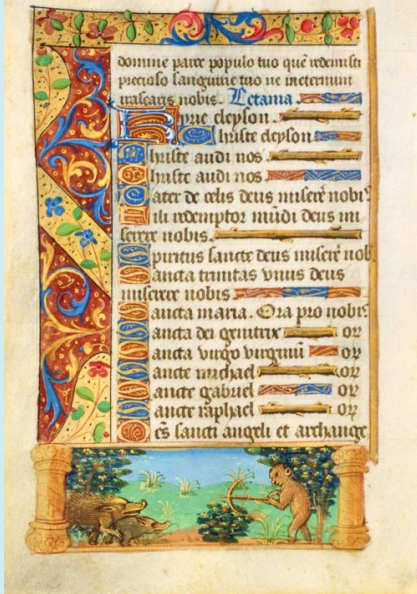 domine parce populo tuo quē redemisti
precioso sanguine tuo ne ineternum
irascaris nobis. Letania
Kyrie eleyson
Christe eleyson
Christe audi nos
Christe audi nos
Pater de celis deus miserē nobis
Fili redemptor mūdi deus mi
serere nobis
Spiritus sancte deus miserē nob
Sancta trinitas vnus deus
miserere nobis
Sancta maria. Ora pro nobis
Sancta dei genitrix or
Sancta virgo virginū or
Sancte michael or
Sancte gabriel or
Sancte raphael or
Oēs sancti angeli et archange